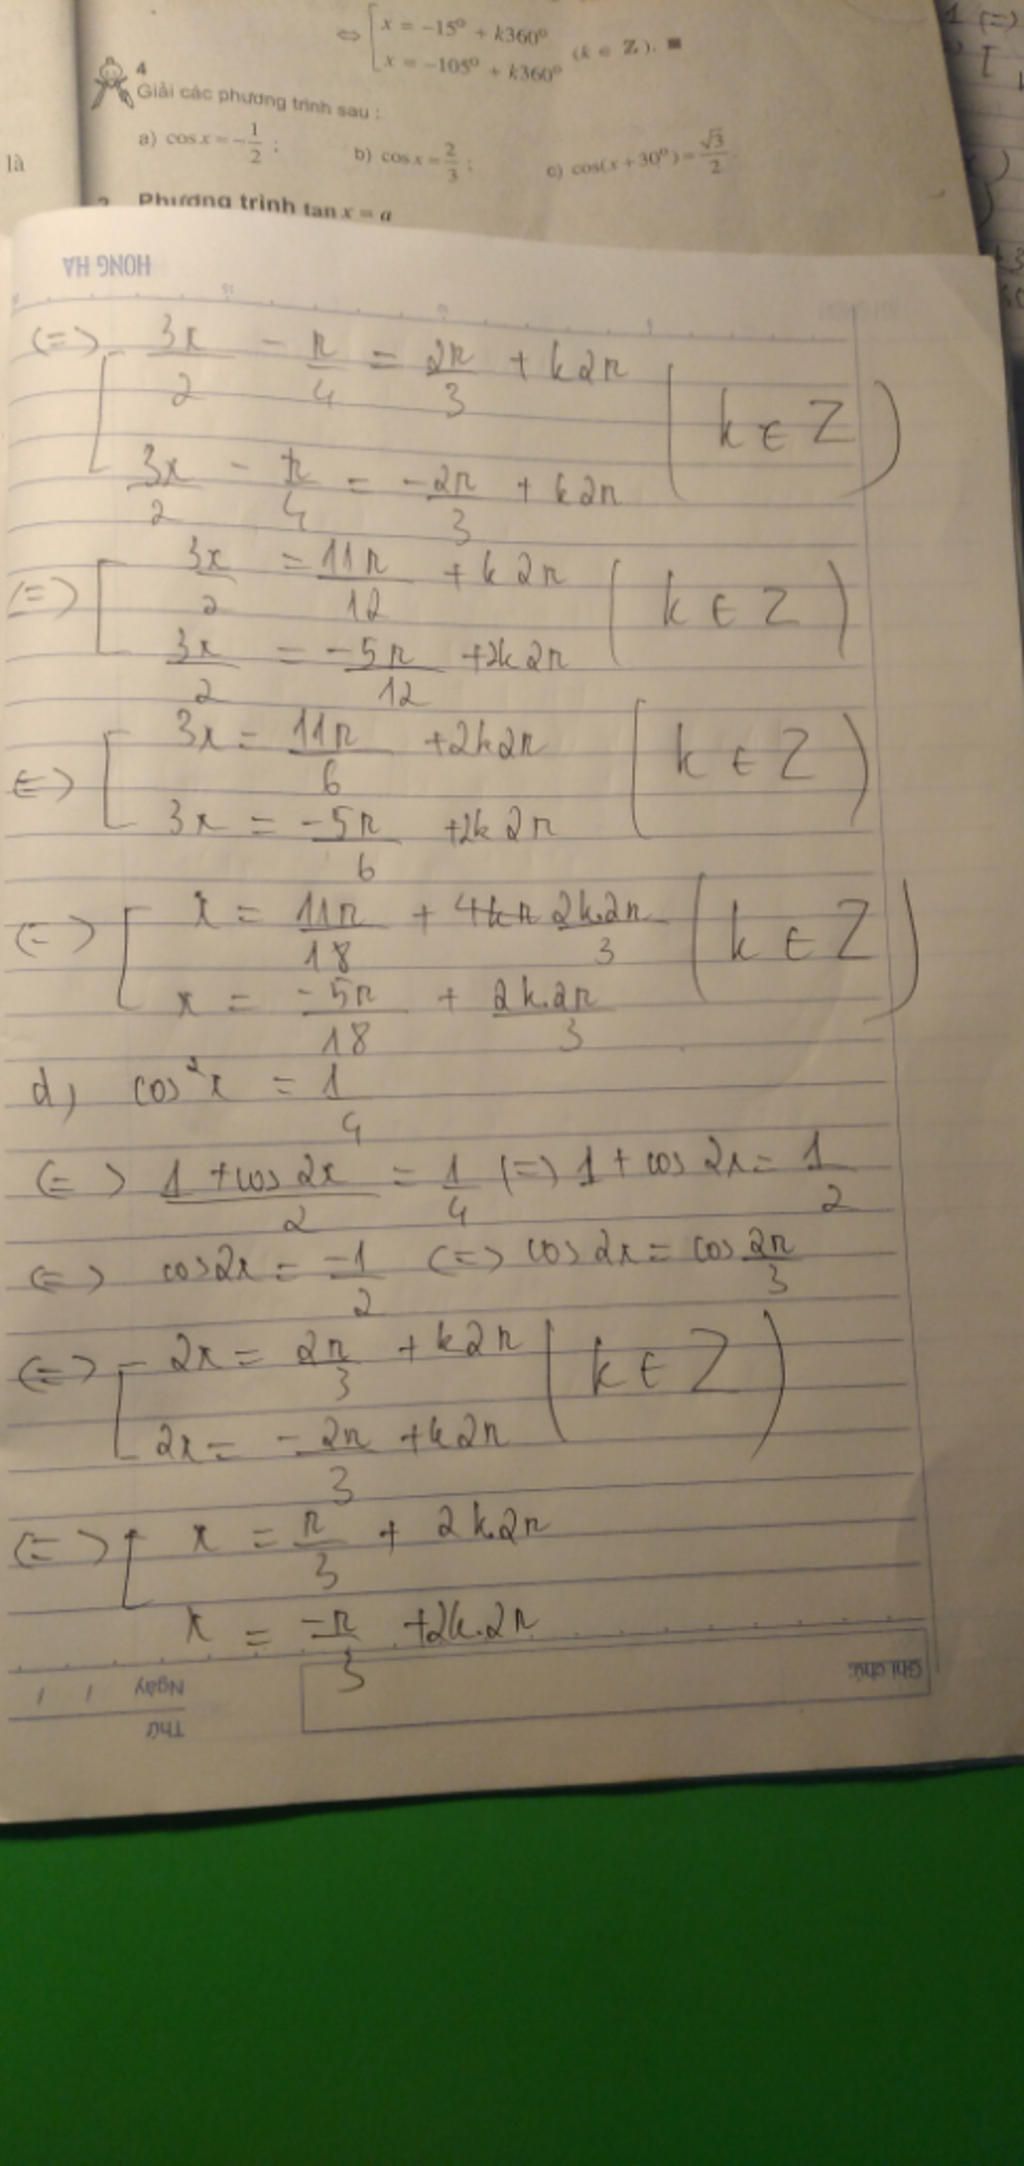 ⇔ [ x = −15° + k360°
x = −105° + k360° (k ∈ Z). ■
4
Giải các phương trình sau :
a) cos x = −1/2 ; b) cos x = 2/3 ; c) cos(x + 30°) = √3/2
là
2. Phương trình tan x = a
HONG HA
(=) [ 3x/2 − π/4 = 2π/3 + k2π (k ∈ Z)
3x/2 − π/4 = −2π/3 + k2π
(=) [ 3x/2 = 11π/12 + k2π (k ∈ Z)
3x/2 = −5π/12 + 2k2π
(=) [ 3x = 11π/6 + 2k2π (k ∈ Z)
3x = −5π/6 + 2k2π
(=) [ x = 11π/18 + 4kπ 2k.2π/3 (k ∈ Z)
x = −5π/18 + 2k.2π/3
d, cos²x = 1/4
(=) 1 + cos 2x/2 = 1/4 (=) 1 + cos 2x = 1/2
(=) cos2x = −1/2 (=) cos 2x = cos 2π/3
(=) [ 2x = 2π/3 + k2π (k ∈ Z)
2x = −2π/3 + k2π
(=) [ x = π/3 + 2k.2π
x = −π/3 + 2k.2π
Ghi chú:
Ngày / /
Thứ